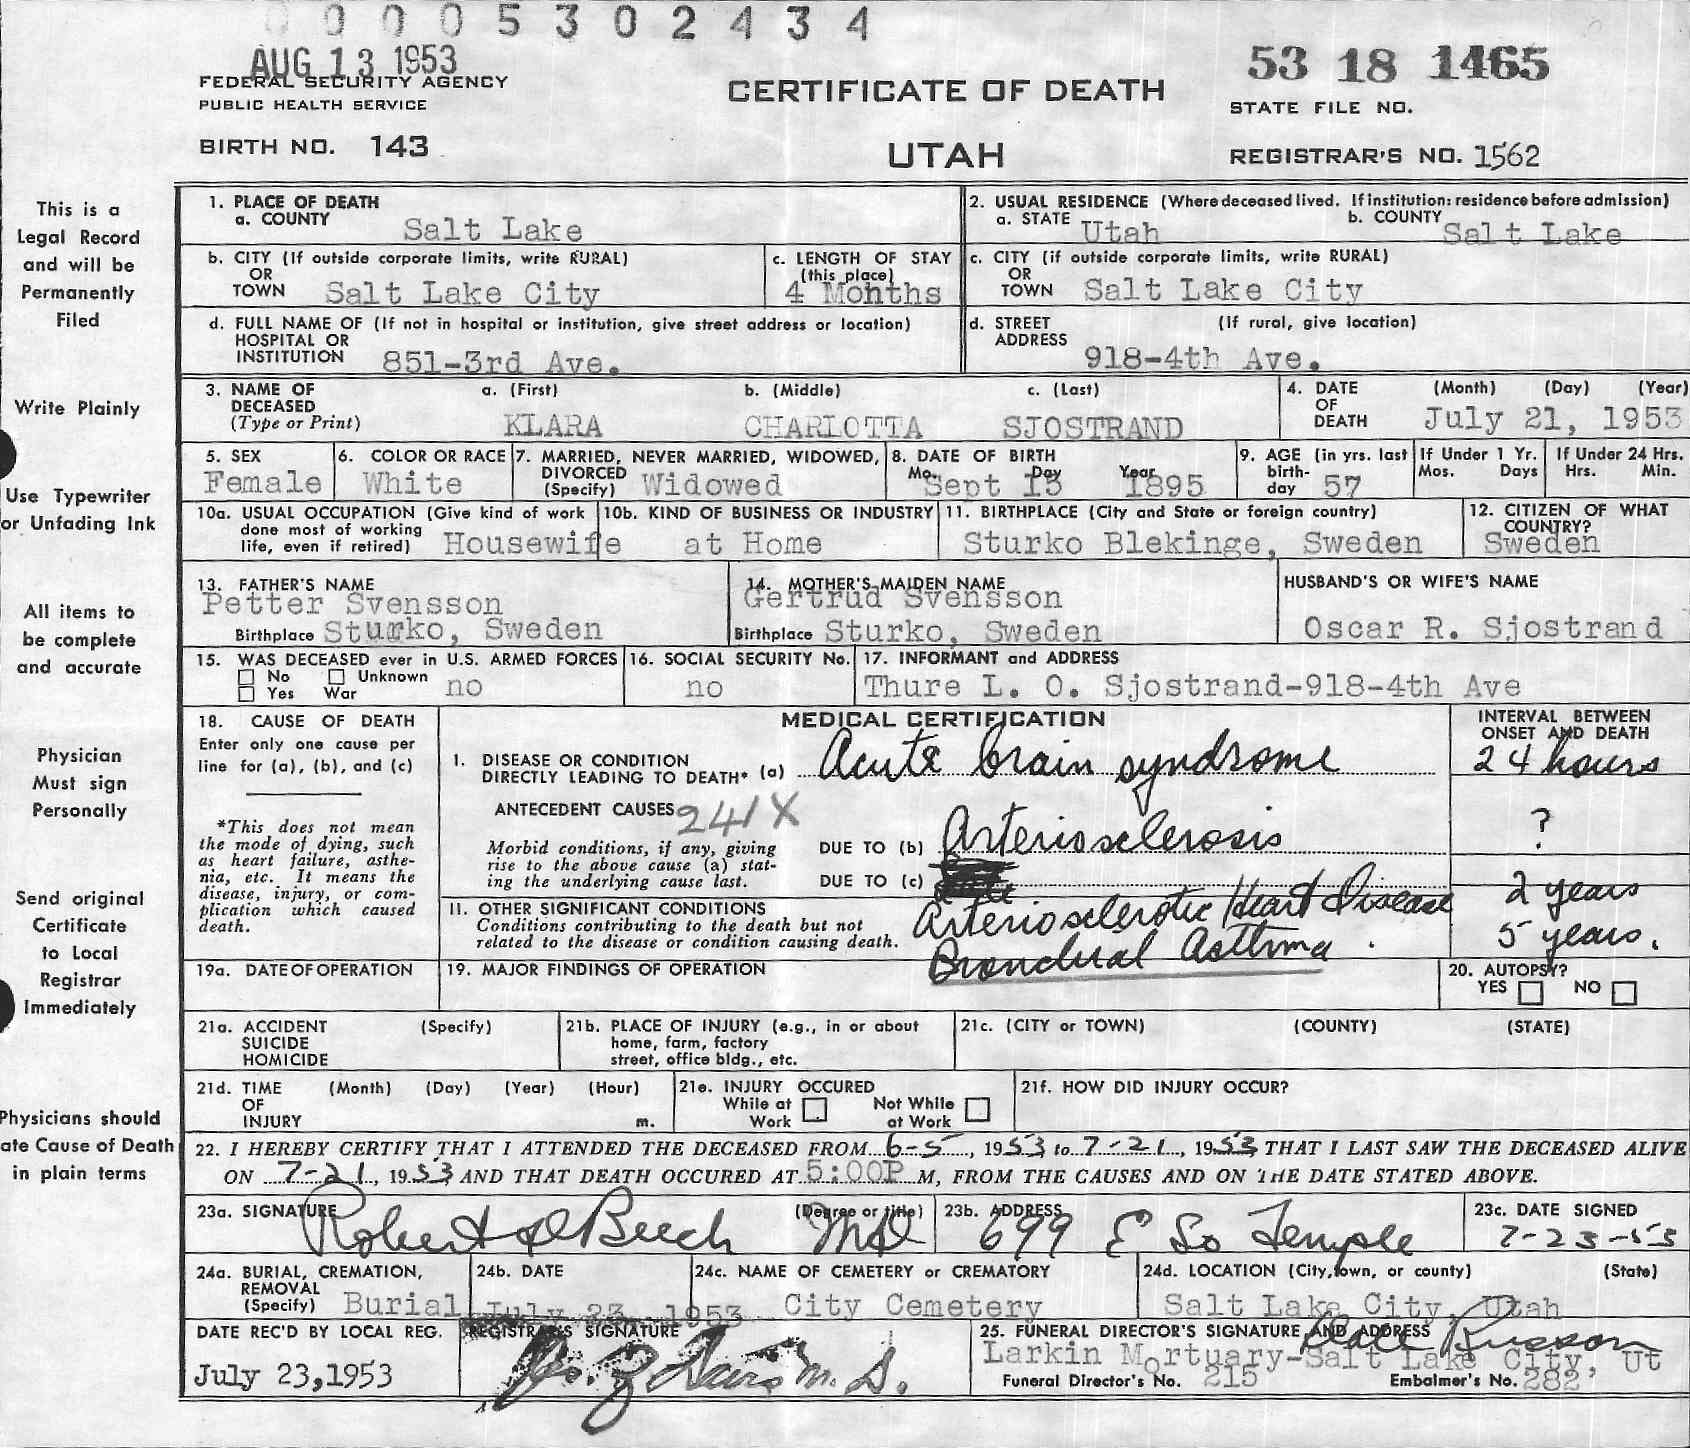 0 0 0 0 5 3 0 2 4 3 4
AUG 13 1953
FEDERAL SECURITY AGENCY
PUBLIC HEALTH SERVICE
BIRTH NO. 143
CERTIFICATE OF DEATH
UTAH
53 18 1465
STATE FILE NO.
REGISTRAR'S NO. 1562
This is a
Legal Record
and will be
Permanently
Filed
Write Plainly
Use Typewriter
or Unfading Ink
All items to
be complete
and accurate
Physician
Must sign
Personally
Send original
Certificate
to Local
Registrar
Immediately
Physicians should
ate Cause of Death
in plain terms
1. PLACE OF DEATH
a. COUNTY Salt Lake
2. USUAL RESIDENCE (Where deceased lived. If institution: residence before admission)
a. STATE Utah b. COUNTY Salt Lake
b. CITY (If outside corporate limits, write RURAL)
OR
TOWN Salt Lake City
c. LENGTH OF STAY
(this place)
4 Months
c. CITY (if outside corporate limits, write RURAL)
OR
TOWN Salt Lake City
d. FULL NAME OF (If not in hospital or institution, give street address or location)
HOSPITAL OR
INSTITUTION 851-3rd Ave.
d. STREET (If rural, give location)
ADDRESS 918-4th Ave.
3. NAME OF a. (First) b. (Middle) c. (Last)
DECEASED
(Type or Print) KLARA CHARLOTTA SJOSTRAND
4. DATE (Month) (Day) (Year)
OF
DEATH July 21, 1953
5. SEX
Female
6. COLOR OR RACE
White
7. MARRIED, NEVER MARRIED, WIDOWED,
DIVORCED
(Specify) Widowed
8. DATE OF BIRTH
Mo. Day Year
Sept 13 1895
9. AGE (in yrs. last
birth-
day 57
If Under 1 Yr.
Mos. Days
If Under 24 Hrs.
Hrs. Min.
10a. USUAL OCCUPATION (Give kind of work
done most of working
life, even if retired) Housewife
10b. KIND OF BUSINESS OR INDUSTRY
at Home
11. BIRTHPLACE (City and State or foreign country)
Sturko Blekinge, Sweden
12. CITIZEN OF WHAT
COUNTRY?
Sweden
13. FATHER'S NAME
Petter Svensson
Birthplace Sturko, Sweden
14. MOTHER'S MAIDEN NAME
Gertrud Svensson
Birthplace Sturko, Sweden
HUSBAND'S OR WIFE'S NAME
Oscar R. Sjostrand
15. WAS DECEASED ever in U.S. ARMED FORCES
No Unknown
Yes War no
16. SOCIAL SECURITY No.
no
17. INFORMANT and ADDRESS
Thure L. O. Sjostrand-918-4th Ave
18. CAUSE OF DEATH
Enter only one cause per
line for (a), (b), and (c)
*This does not mean
the mode of dying, such
as heart failure, asthe-
nia, etc. It means the
disease, injury, or com-
plication which caused
death.
MEDICAL CERTIFICATION
INTERVAL BETWEEN
ONSET AND DEATH
1. DISEASE OR CONDITION
DIRECTLY LEADING TO DEATH* (a) Acute brain syndrome 24 hours
ANTECEDENT CAUSES 241X
Morbid conditions, if any, giving
rise to the above cause (a) stat-
ing the underlying cause last.
DUE TO (b) Arteriosclerosis ?
DUE TO (c)
11. OTHER SIGNIFICANT CONDITIONS
Conditions contributing to the death but not
related to the disease or condition causing death.
Arteriosclerotic Heart Disease 2 years
Bronchial Asthma. 5 years.
19a. DATE OF OPERATION
19. MAJOR FINDINGS OF OPERATION
20. AUTOPSY?
YES NO
21a. ACCIDENT (Specify)
SUICIDE
HOMICIDE
21b. PLACE OF INJURY (e.g., in or about
home, farm, factory
street, office bldg., etc.
21c. (CITY or TOWN) (COUNTY) (STATE)
21d. TIME (Month) (Day) (Year) (Hour)
OF
INJURY m.
21e. INJURY OCCURED
While at Not While
Work at Work
21f. HOW DID INJURY OCCUR?
22. I HEREBY CERTIFY THAT I ATTENDED THE DECEASED FROM 6-5, 1953 to 7-21, 1953 THAT I LAST SAW THE DECEASED ALIVE
ON 7-21, 1953 AND THAT DEATH OCCURED AT 5:00P M, FROM THE CAUSES AND ON THE DATE STATED ABOVE.
23a. SIGNATURE (Degree or title)
Robert Beech MD
23b. ADDRESS
699 E So Temple
23c. DATE SIGNED
7-23-53
24a. BURIAL, CREMATION,
REMOVAL
(Specify) Burial
24b. DATE
July 23, 1953
24c. NAME OF CEMETERY or CREMATORY
City Cemetery
24d. LOCATION (City, town, or county) (State)
Salt Lake City, Utah
DATE REC'D BY LOCAL REG.
July 23,1953
REGISTRAR'S SIGNATURE
M. D.
25. FUNERAL DIRECTOR'S SIGNATURE AND ADDRESS
Larkin Mortuary-Salt Lake City, Ut
Funeral Director's No. 215 Embalmer's No. 282